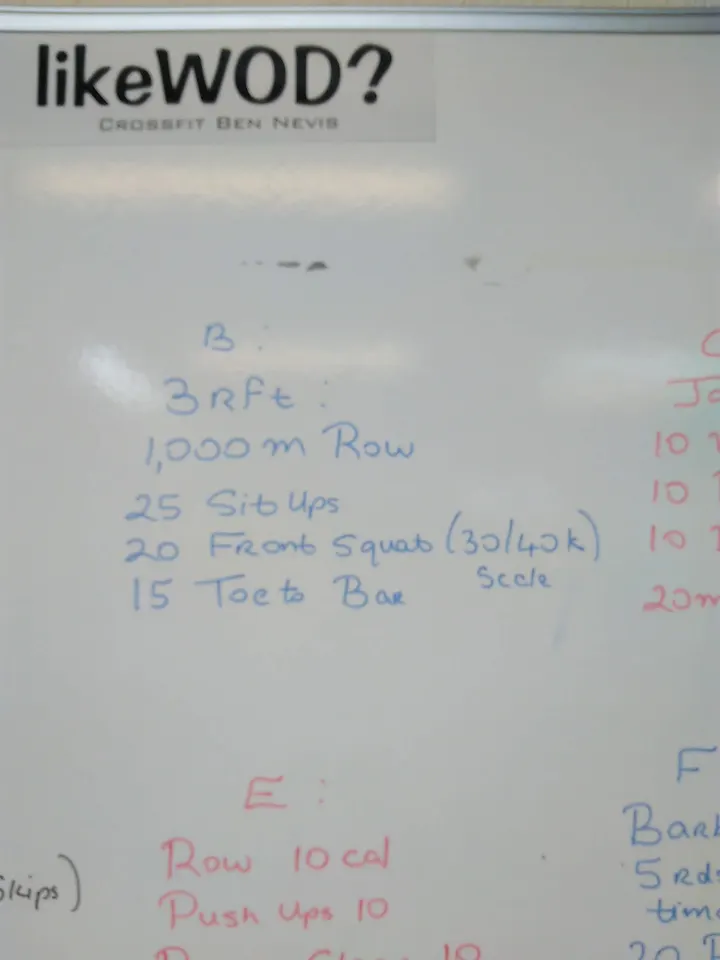 likeWOD?
CROSSFIT BEN NEVIS
B:
3 Rft:
1,000m Row
25 Sit Ups
20 Front Squat (30/40k)
Scale
15 Toe to Bar
C
10
10
10
20m
E:
Row 10 cal
Push Ups 10
10
Skips)
F
5 Rds
20